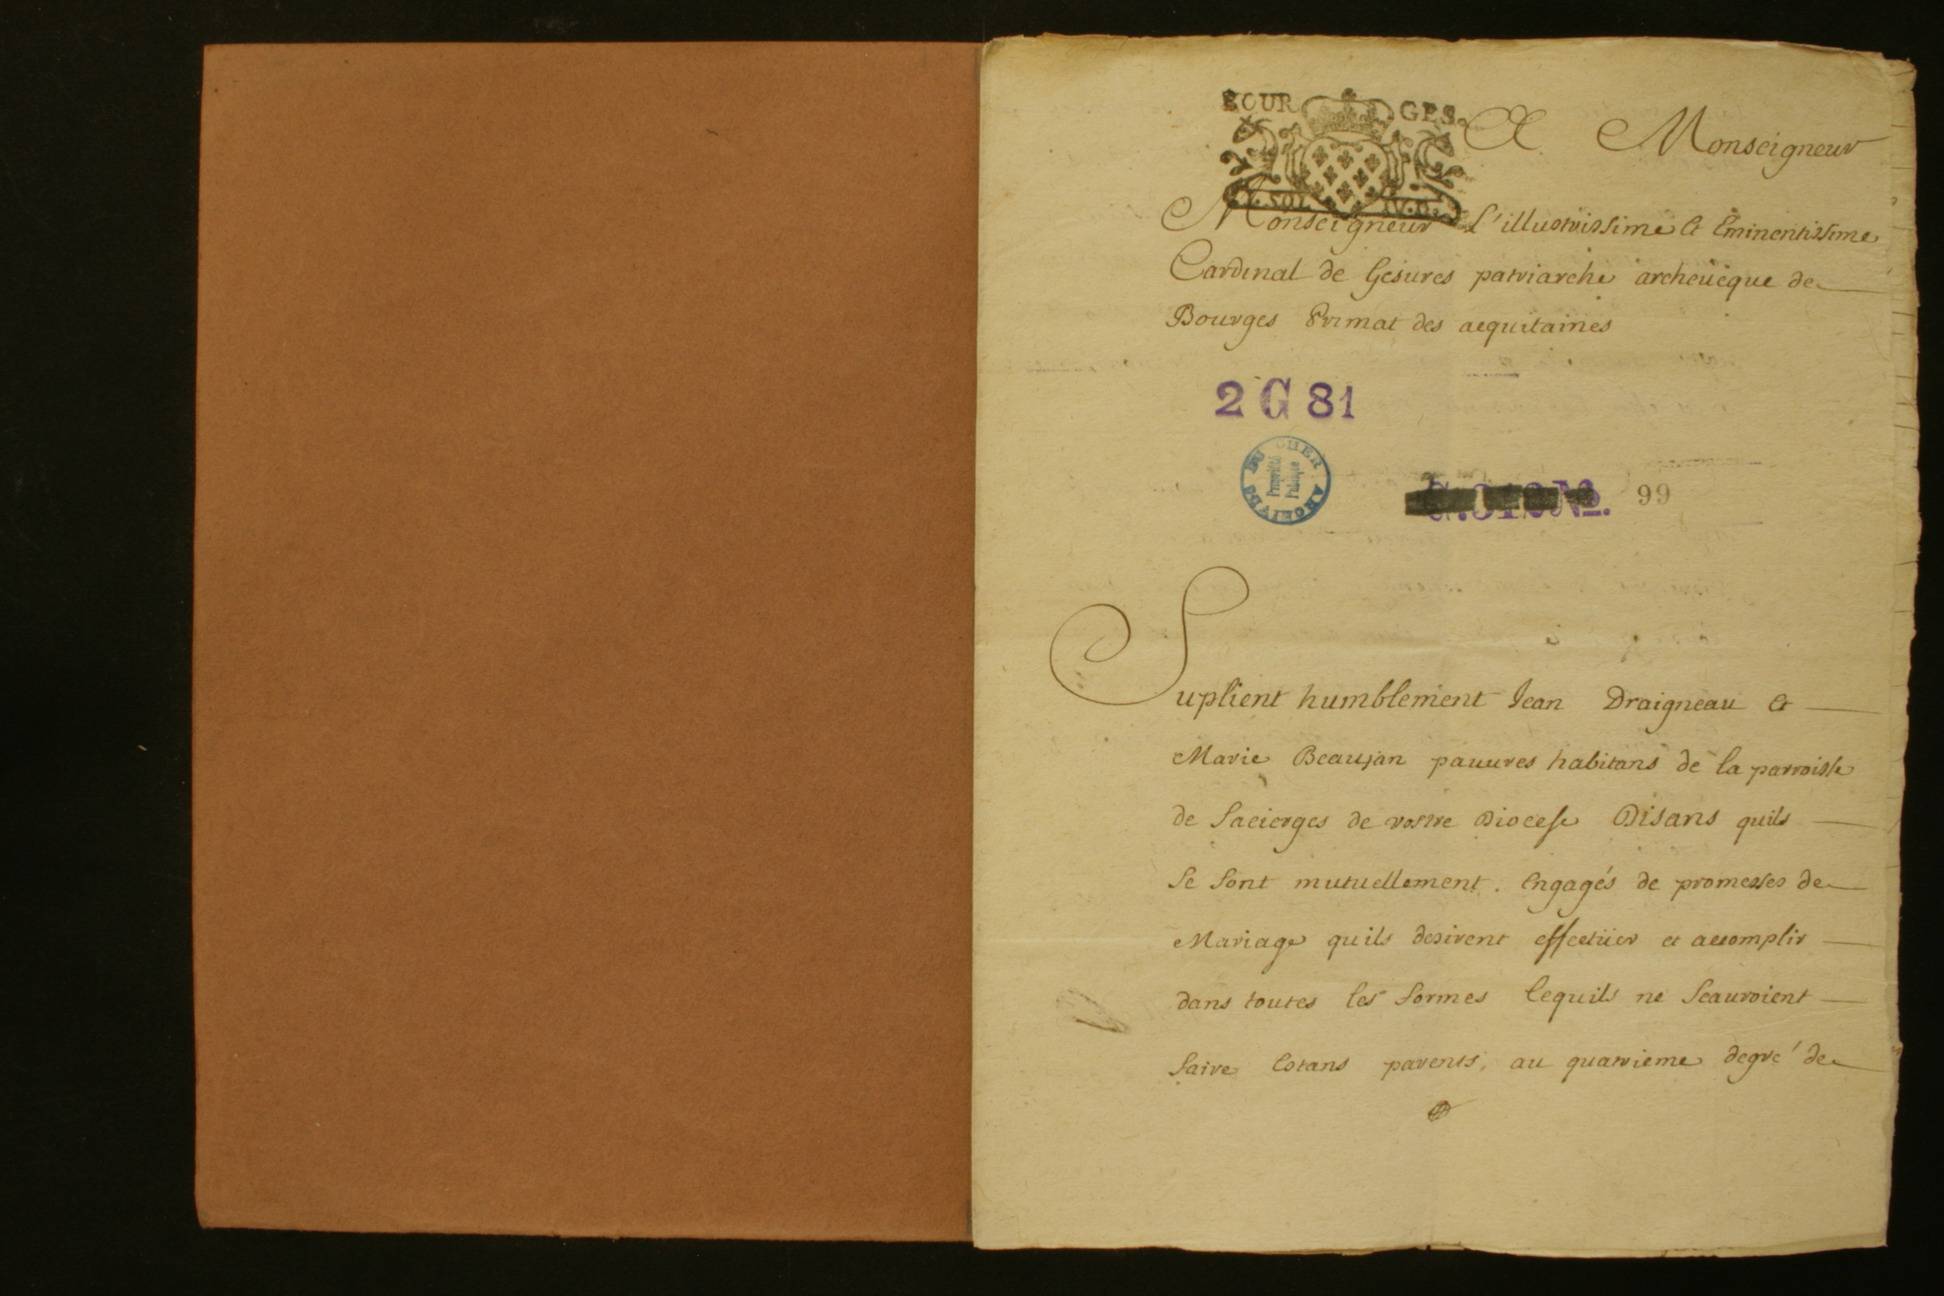 BOURGES.
A Monseigneur
I. SOL IV. D.
Monseigneur L'illustrissime et Eminentissime
Cardinal de Gesures patriarche archeuêque de
Bourges Primat des aequitaines
2 G 81
ARCHIVES DU CHER
Propriété
Publique
No. 99
Suplient humblement Jean Draigneau et
Marie Beaujan pauures habitans de la parroisse
de Sacierges de vostre Diocese Disans quils
se sont mutuellement. Engagés de promesses de
Mariage quils desirent effectüer et accomplir
dans toutes les formes Cequils ne scauroient
faire Estans parents, au quatrieme degré de